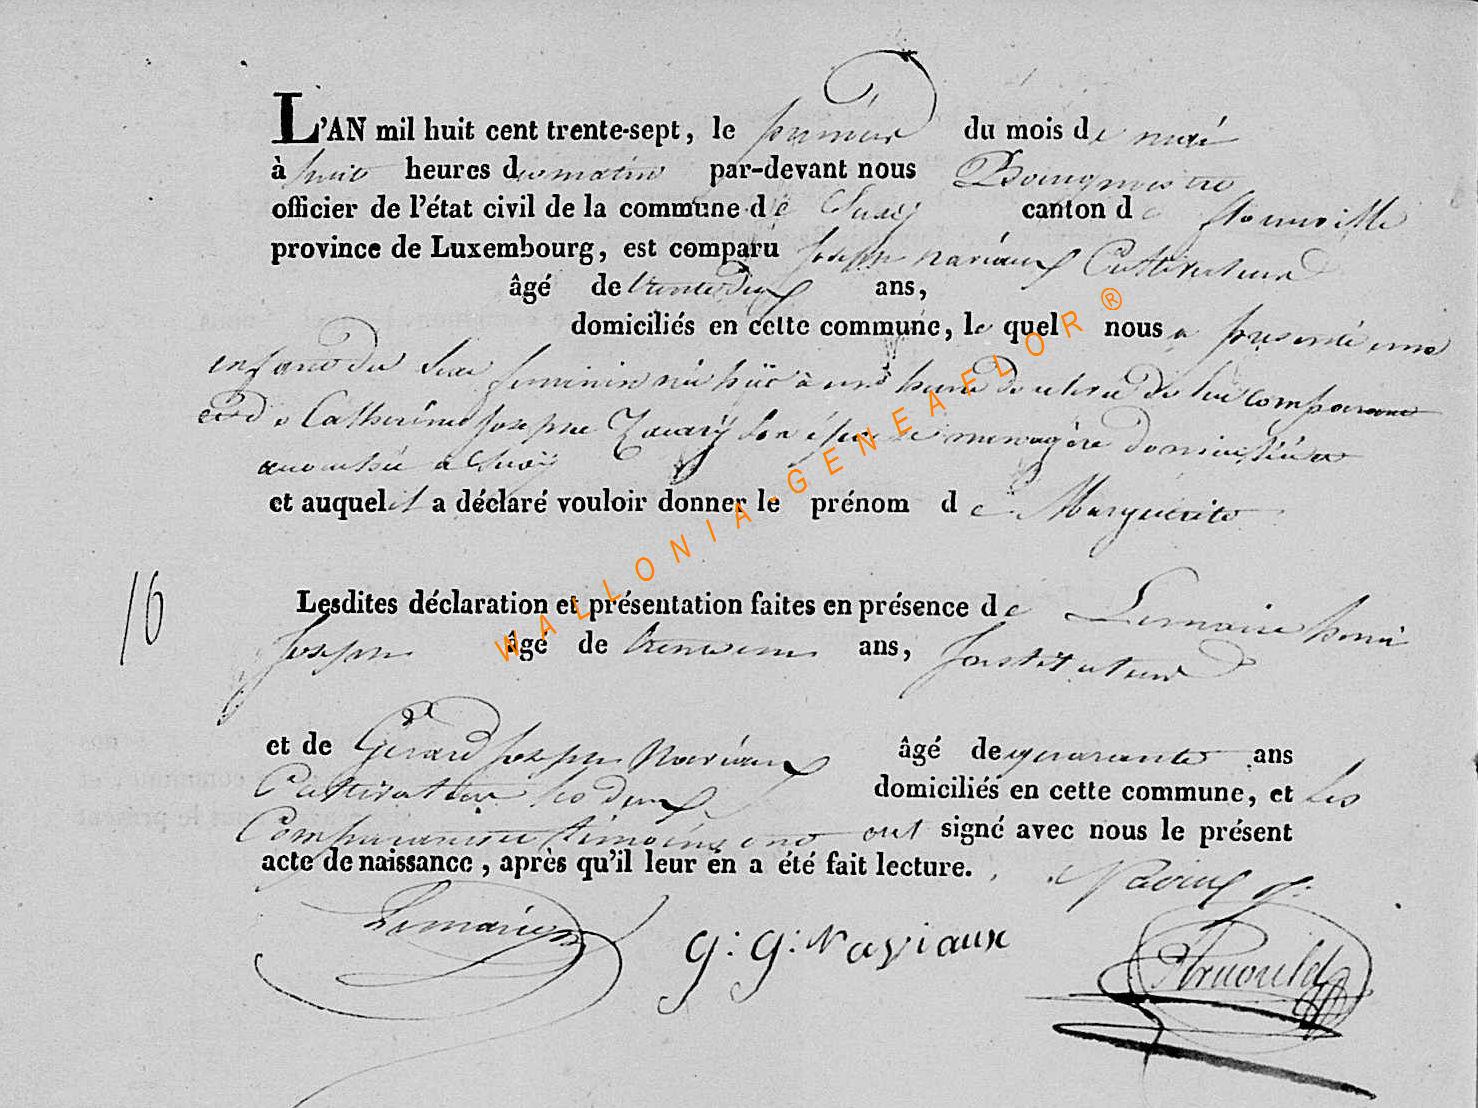 L'AN mil huit cent trente-sept, le premier du mois de mai
à huit heures du matin par-devant nous Bourgmestre
officier de l'état civil de la commune de Suxy canton de florenville
province de Luxembourg, est comparu Joseph naviaux Cultivateur
âgé de trente deux ans,
domiciliés en cette commune, le quel nous a presenté une
enfant du sexe feminin née hiér à une heure de relevée de lui comparant
et de Catherine Josephe son épouse menagère domiciliée
accouchée a Suxÿ
et auquel il a déclaré vouloir donner le prénom de Marguerite
16
Lesdites déclaration et présentation faites en présence de Lemaire henri
Joseph âgé de trente ans, Instituteur
et de Gerard Joseph Naviaux âgé de quarante ans
Cultivateur tous deux domiciliés en cette commune, et les
Comparant et témoins ont ont signé avec nous le présent
acte de naissance, après qu'il leur en a été fait lecture.
Lemaire
g: g: Naviaux
Arnould
WALLONIA-GENEAFLOR ®